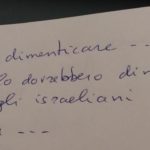 dimenticare - -
lo dovrebbero
gli israeliani
- - -